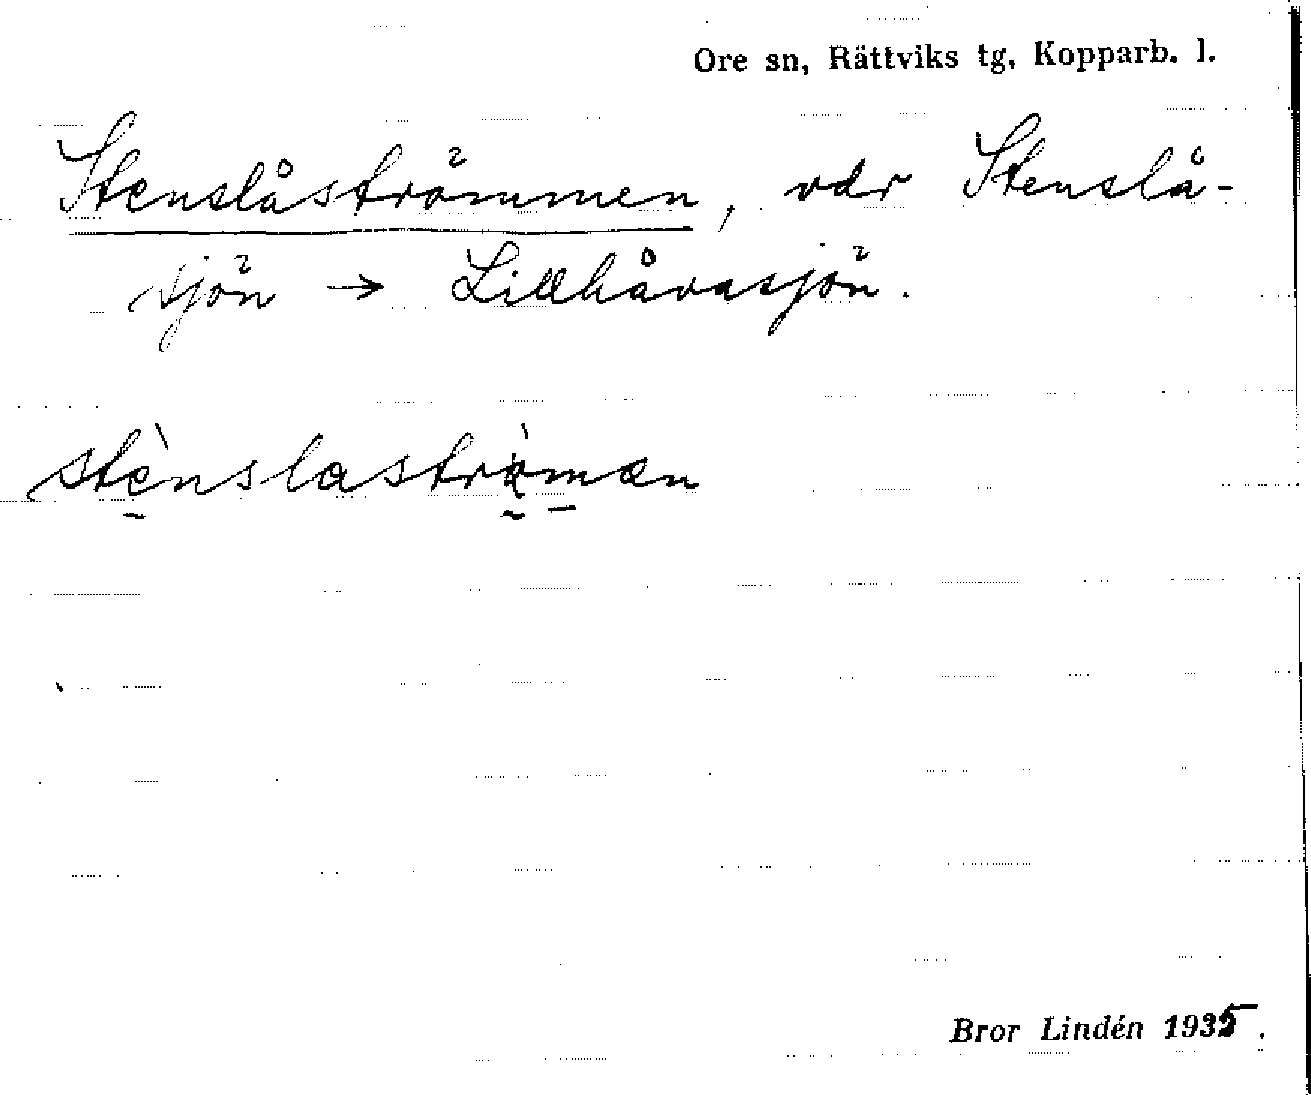 Ore sn, Rättviks tg, Kopparb. l.
Stenslåströmmen, vdr Stenslå-
sjön → Lillhåvasjön.
stènslaströ̀mæn
Bror Lindén 1935.